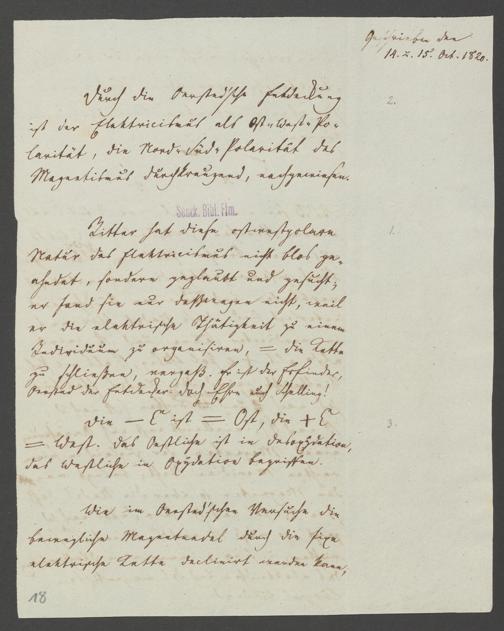 Geschrieben den
14. u. 15. Oct. 1820.
Durch die Oerstedsche Entdeckung
2.
ist der Elektricismus als Ost-West-Po-
larität, die Nord-Süd-Polarität des
Magnetismus durchkreuzend, nachgewiesen.
Senck. Bibl. Ffm.
Ritter hat diese ostwestpolare
1.
Natur des Elektricismus nicht blos ge-
ahndet, sondern geglaubt und gesucht;
er fand sie nur deßwegen nicht, weil
er die elektrische Thätigkeit zu einem
Individuum zu organisiren, = die Kette
zu schließen, vergaß. Er ist der Erfinder,
Oersted der Entdecker. doch Ehre auch Schelling!
die – E ist = Ost, die + E
3.
= West. das Oestliche ist in Desoxydation,
das Westliche in Oxydation begriffen.
Wie im Oerstedschen Versuche die
bewegliche Magnetnadel durch die fixe
elektrische Kette declinirt werden kann,
18